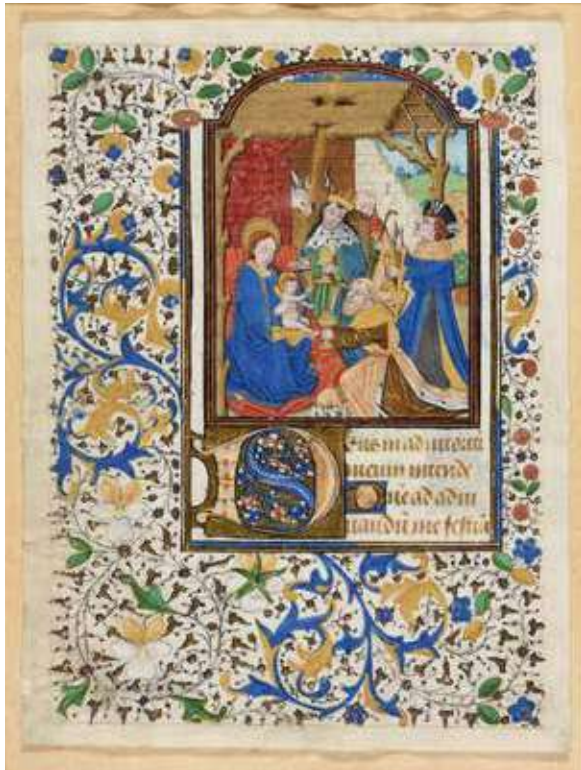 Deus in adiutoriū
meum intende
Dne ad adiu
uandū me festina